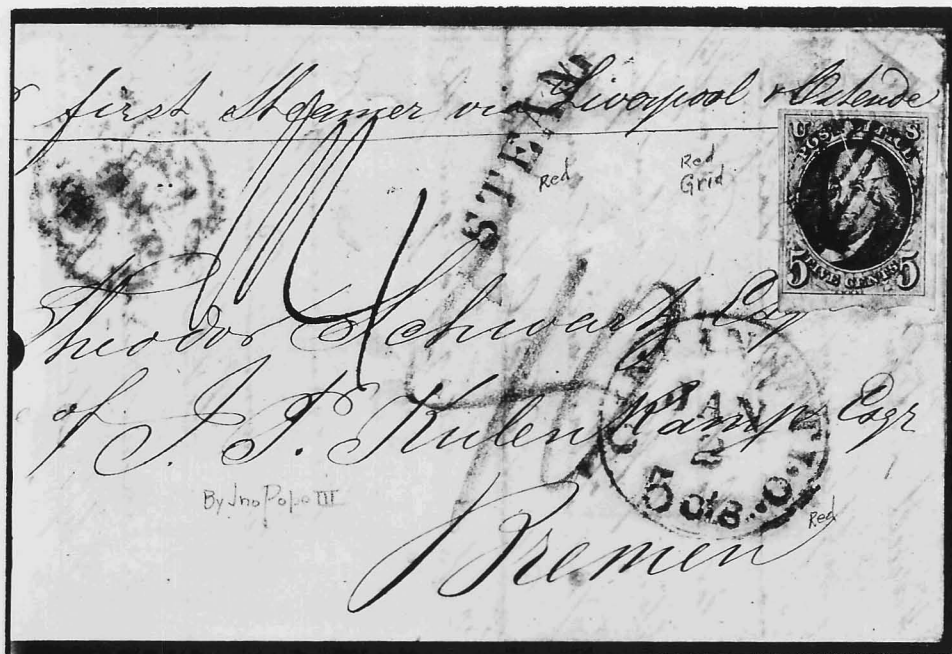 first Steamer via Liverpool & Ostende
STEAM
Red
Red
Grid
U S
POST OFFICE
5 FIVE CENTS 5
Theodor Schwartz Esq
of J. F. Kulen Kamp Esqr
JAN
2
5 cts.
Red
By Jno Pope III
Bremen